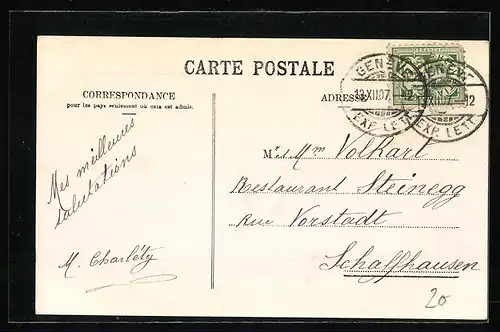 CARTE POSTALE
CORRESPONDANCE
pour les pays seulement où cela est admis.
ADRESSE
GENÈVE
13.XII.07.
EXP. LETT.
GENÈVE
12
EXP. LETT.
Mes meilleures
salutations
M. Charléty
Mr et Mm Volkart
Restaurant Steinegg
Rue Vorstadt
Schaffhausen
20